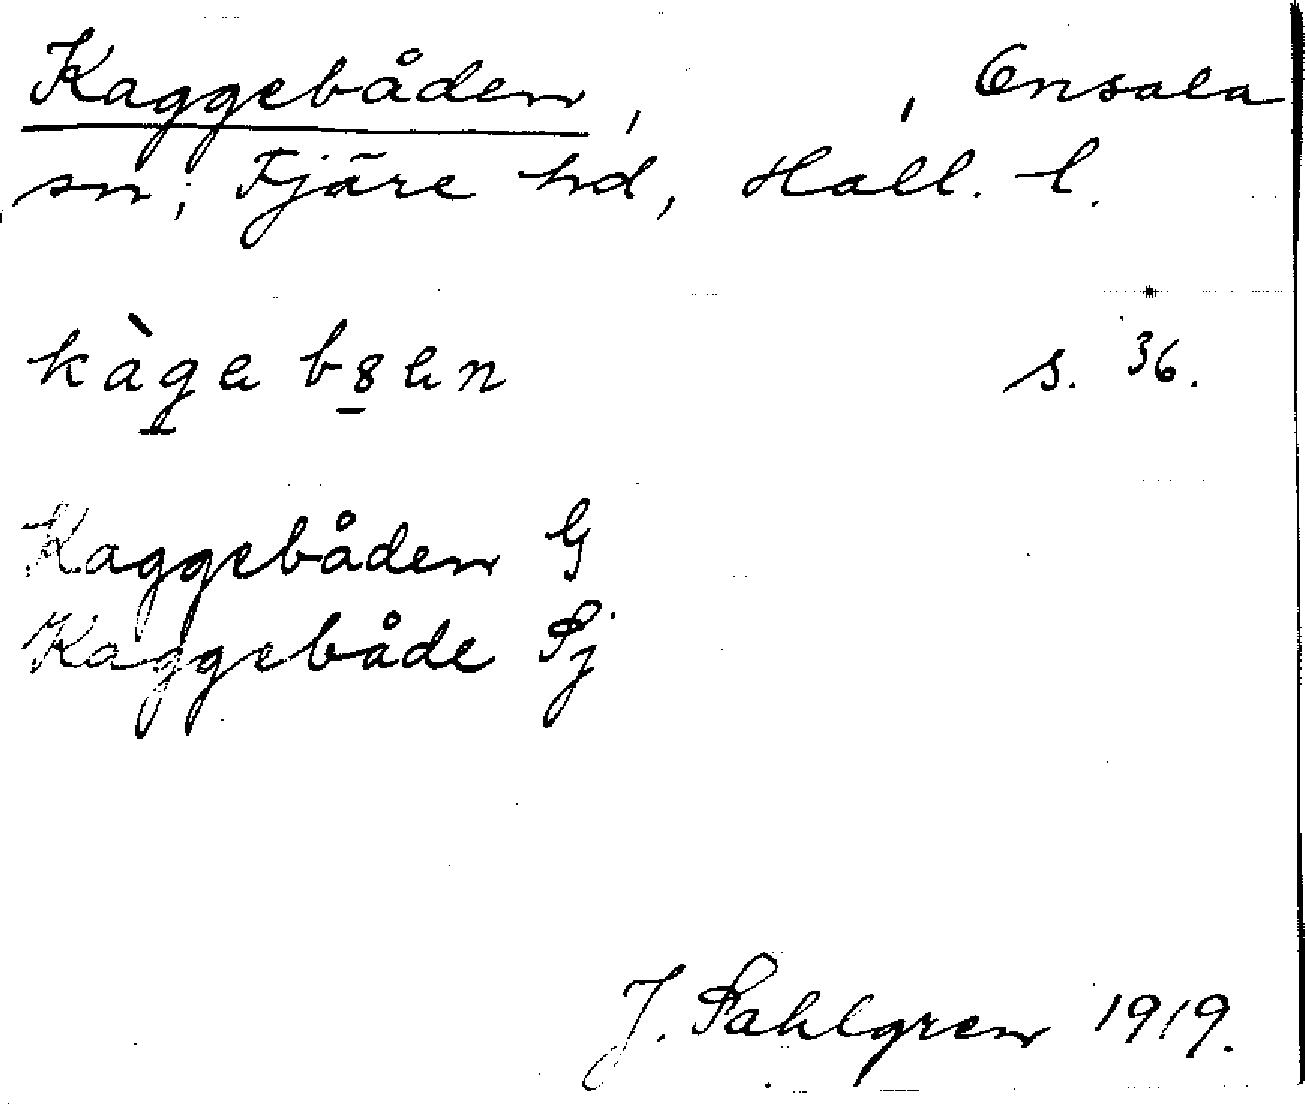 Kaggebåden, , Onsala
sn, Fjäre hd, Hall. l.
kàgebȣen s. 36.
Kaggebåden G
Kaggebåde Sj
J. Sahlgren 1919.